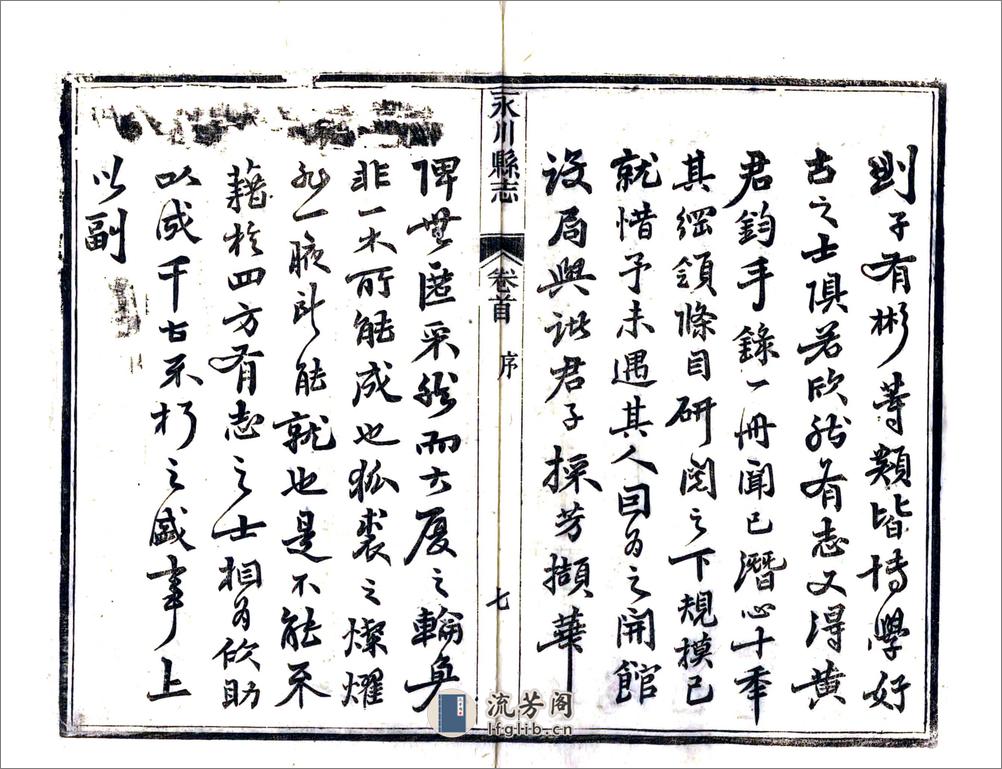 劉子有彬等類皆博學好
古之士俱若欣然有志又得黄
君鈞手錄一冊聞已潛心十年
其綱領條目研閱之下規模已
就惜予未遇其人因為之開館
設局與諸君子採芳擷華
永川縣志
卷首
序
七
俾無匿采然而大厦之輪奐
非一木所能成也狐裘之燦耀
非一腋所能就也是不能不
藉於四方有志之士相為佽助
以成千古不朽之盛事上
以副
流芳阁
lfglib.cn